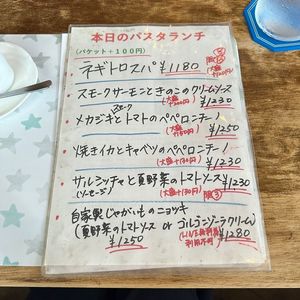 本日のパスタランチ
(バケット+100円)
ネギトロスパ ¥1180
スモークサーモンときのこのクリームソース
¥1230
スモーク
メカジキとトマトのペペロンチーノ
¥1250
焼きイカとキャベツのペペロンチーノ
(大盛+130円) ¥1230
サルシッチャと夏野菜のトマトソース ¥1230
(ソーセージ) (大盛+130円) 限③
自家製じゃがいものニョッキ
(夏野菜のトマトソース or ゴルゴンゾーラクリーム)
¥1250 ¥1280
利用不可